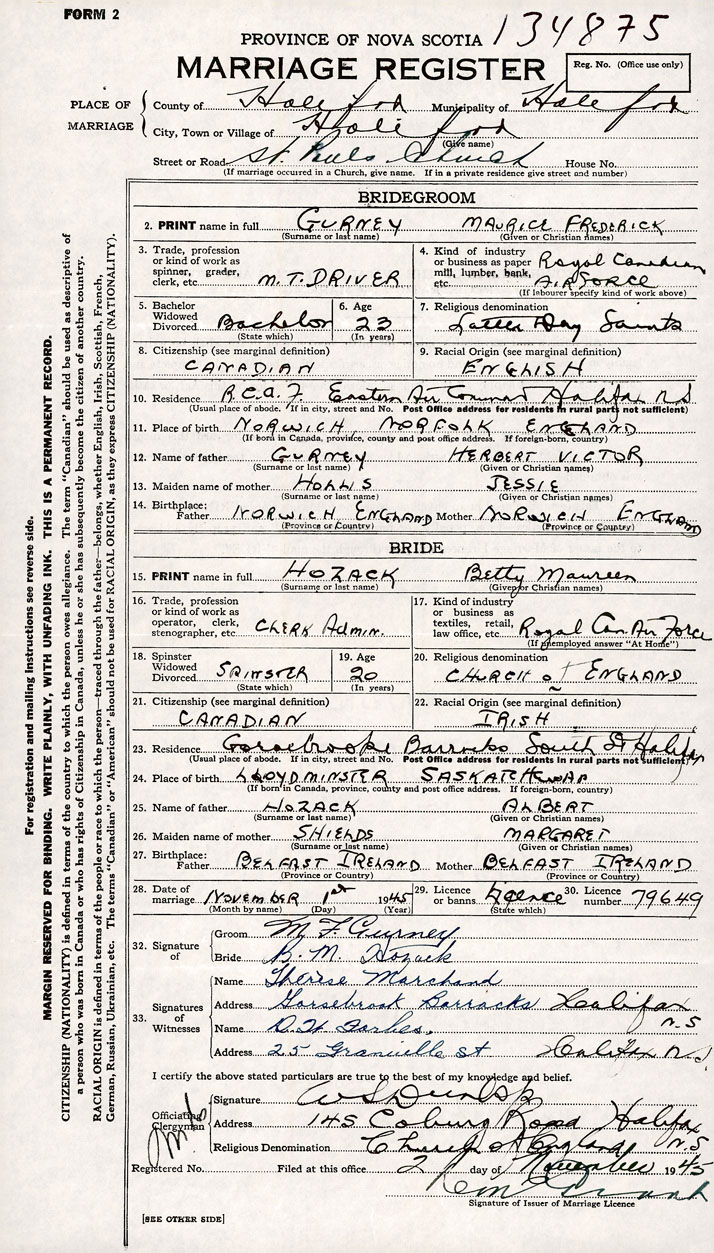 FORM 2
134875
PROVINCE OF NOVA SCOTIA
MARRIAGE REGISTER
Reg. No. (Office use only)
PLACE OF MARRIAGE
County of Halifax Municipality of Halifax
City, Town or Village of Halifax
(Give name)
Street or Road St. Pauls Church House No.
(If marriage occurred in a Church, give name. If in a private residence give street and number)
BRIDEGROOM
2. PRINT name in full GURNEY MAURICE FREDERICK
(Surname or last name) (Given or Christian names)
3. Trade, profession or kind of work as spinner, grader, clerk, etc. M.T. DRIVER
4. Kind of industry or business as paper mill, lumber, bank, etc. Royal Canadian AIR FORCE
(If labourer specify kind of work above)
5. Bachelor Widowed Divorced Bachelor
(State which)
6. Age 23
(In years)
7. Religious denomination Latter Day Saints
8. Citizenship (see marginal definition) CANADIAN
9. Racial Origin (see marginal definition) ENGLISH
10. Residence R.C.A.F. Eastern Air Command Halifax N.S.
(Usual place of abode. If in city, street and No. Post Office address for residents in rural parts not sufficient)
11. Place of birth NORWICH, NORFOLK ENGLAND
(If born in Canada, province, county and post office address. If foreign-born, country)
12. Name of father GURNEY HERBERT VICTOR
(Surname or last name) (Given or Christian names)
13. Maiden name of mother HOLLIS JESSIE
(Surname or last name) (Given or Christian names)
14. Birthplace: Father NORWICH ENGLAND Mother NORWICH ENGLAND
(Province or Country) (Province or Country)
BRIDE
15. PRINT name in full HOZACK Betty Maureen
(Surname or last name) (Given or Christian names)
16. Trade, profession or kind of work as operator, clerk, stenographer, etc. CLERK ADMIN.
17. Kind of industry or business as textiles, retail, law office, etc. Royal Can. Air Force
(If unemployed answer "At Home")
18. Spinster Widowed Divorced SPINSTER
(State which)
19. Age 20
(In years)
20. Religious denomination CHURCH of ENGLAND
21. Citizenship (see marginal definition) CANADIAN
22. Racial Origin (see marginal definition) IRISH
23. Residence Gorsebrooke Barracks South St Halifax
(Usual place of abode. If in city, street and No. Post Office address for residents in rural parts not sufficient)
24. Place of birth LLOYDMINSTER SASKATCHEWAN
(If born in Canada, province, county and post office address. If foreign-born, country)
25. Name of father HOZACK ALBERT
(Surname or last name) (Given or Christian names)
26. Maiden name of mother SHIELDS MARGARET
(Surname or last name) (Given or Christian names)
27. Birthplace: Father BELFAST IRELAND Mother BELFAST IRELAND
(Province or Country) (Province or Country)
28. Date of marriage NOVEMBER 1st 1945
(Month by name) (Day) (Year)
29. Licence or banns licence
(State which)
30. Licence number 79649
32. Signature of
Groom M F Gurney
Bride B. M. Hozack
33. Signatures of Witnesses
Name Thérèse Marchand
Address Gorsebrook Barracks Halifax N.S
Name D. H. Forbes.
Address 25 Granville St Halifax N.S
I certify the above stated particulars are true to the best of my knowledge and belief.
Officiating Clergyman
Signature W S Dunlop
Address 145 Coburg Road Halifax N.S
Religious Denomination Church of England
Registered No. Filed at this office 2 day of November 1945
Signature of Issuer of Marriage Licence
[SEE OTHER SIDE]
For registration and mailing instructions see reverse side.
MARGIN RESERVED FOR BINDING. WRITE PLAINLY, WITH UNFADING INK. THIS IS A PERMANENT RECORD.
CITIZENSHIP (NATIONALITY) is defined in terms of the country to which the person owes allegiance. The term "Canadian" should be used as descriptive of
a person who was born in Canada or who has rights of Citizenship in Canada, unless he or she has subsequently become the citizen of another country.
RACIAL ORIGIN is defined in terms of the people or race to which the person—traced through the father—belongs, whether English, Irish, Scottish, French,
German, Russian, Ukrainian, etc. The terms "Canadian" or "American" should not be used for RACIAL ORIGIN, as they express CITIZENSHIP (NATIONALITY).